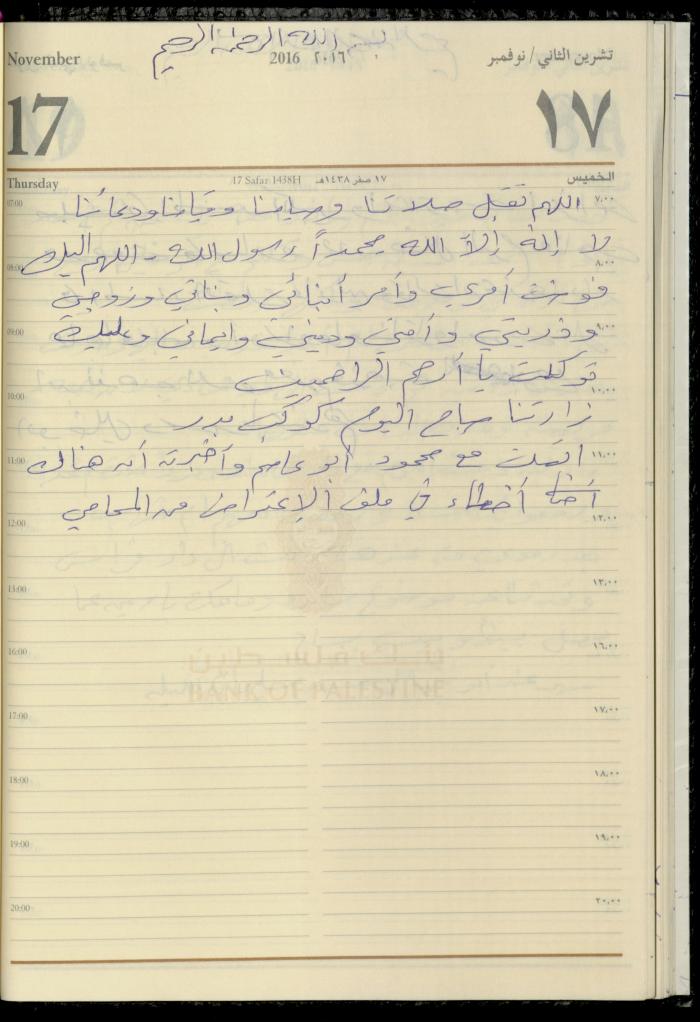 بسم الله الرحمن الرحيم
November 2016 ٢٠١٦ تشرين الثاني / نوفمبر
17 ١٧
Thursday 17 Safar 1438H ١٧ صفر ١٤٣٨هـ الخميس
07:00 اللهم تقبل صلاتنا وصيامنا وقيامنا ودعائنا ٧،٠٠
لا إله إلا الله محمداً رسول الله - اللهم إليك
08:00 ٨،٠٠
فوضت أمري وأمر أبنائي وبناتي وزوجي
09:00 وذريتي وأمتي وديني وايماني وعليك ٩،٠٠
توكلت يا أرحم الراحمين
10:00 ١٠،٠٠
زارتنا صباح اليوم كوكب بدر
11:00 اتصلت مع محمود أبو عاصم وأخبرته أنه هناك ١١،٠٠
أخطاء في ملف الإعتراض من المحامي
12:00 ١٢،٠٠
13:00 ١٣،٠٠
16:00 ١٦،٠٠
بنك فلسطين
BANK OF PALESTINE
17:00 ١٧،٠٠
18:00 ١٨،٠٠
19:00 ١٩،٠٠
20:00 ٢٠،٠٠